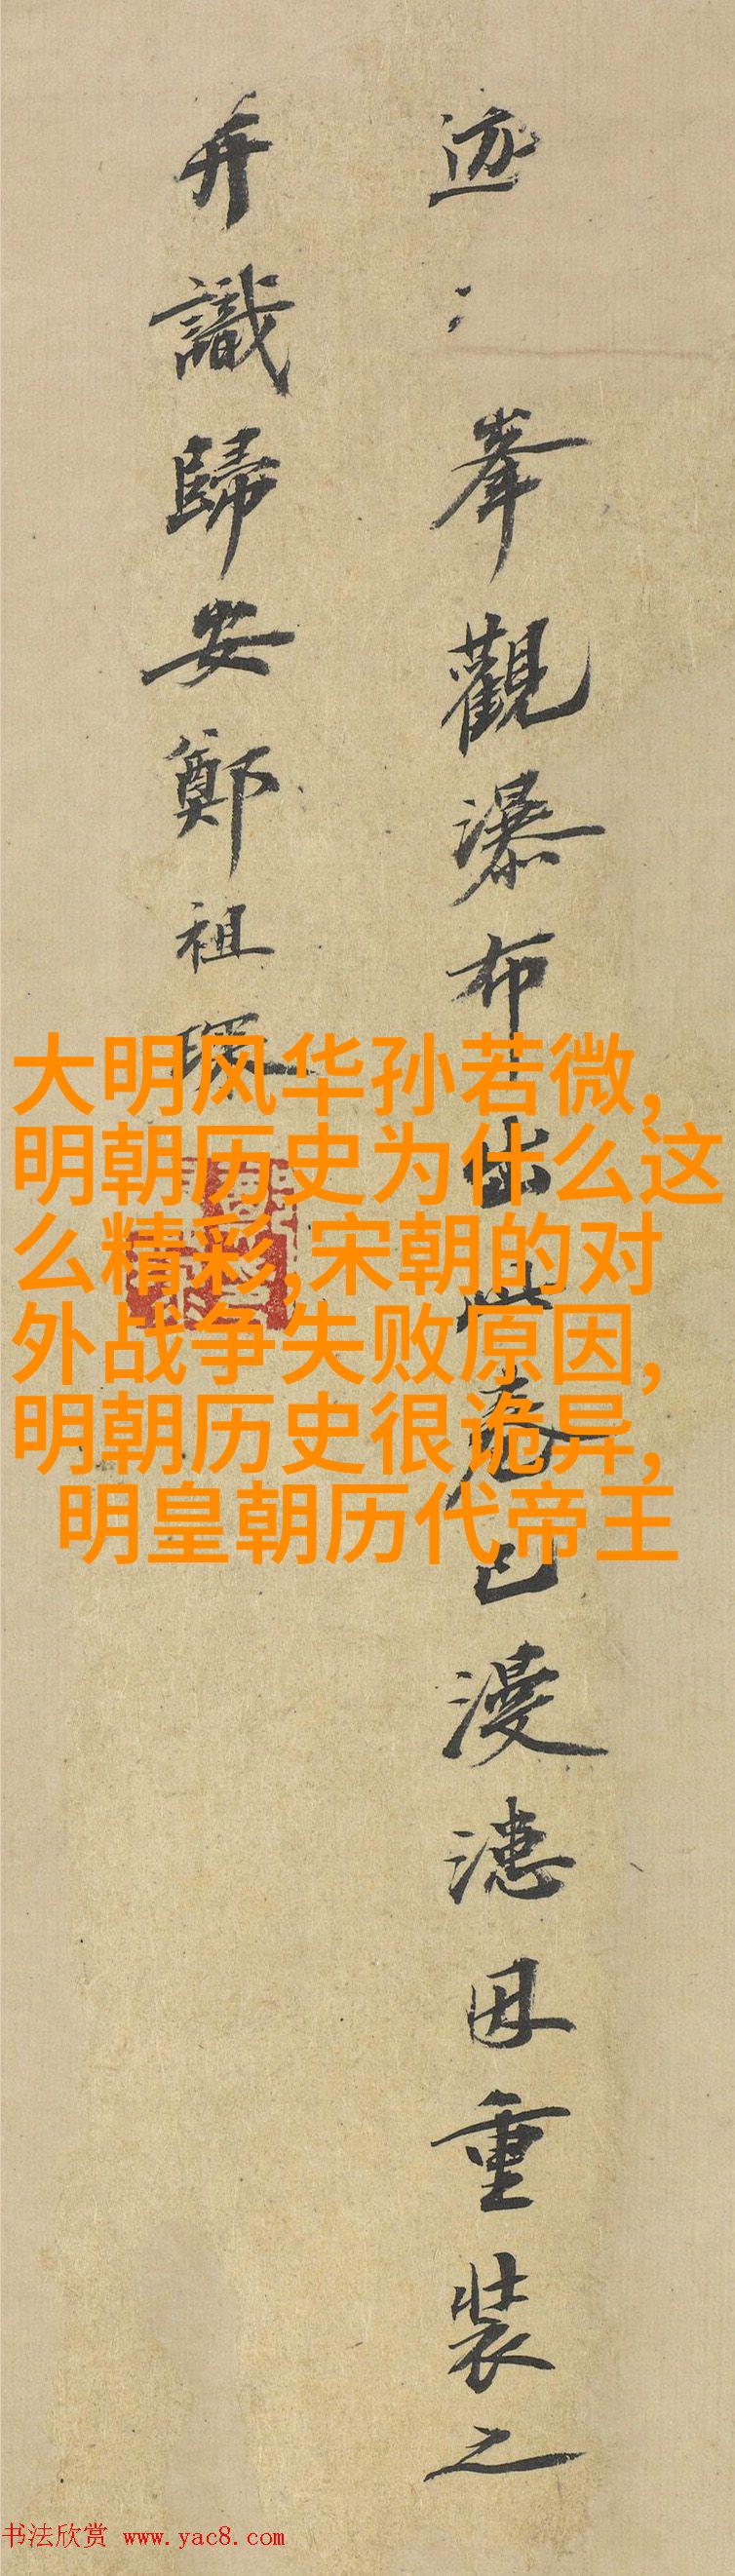 迹〻峯觀瀑布出此卷已漫漶因重裝之
并識歸安鄭祖琛
大明风华孙若微,
明朝历史为什么这
么精彩,宋朝的对
外战争失败原因,
明朝历史很诡异,
明皇朝历代帝王
书法欣赏 www.yac8.com